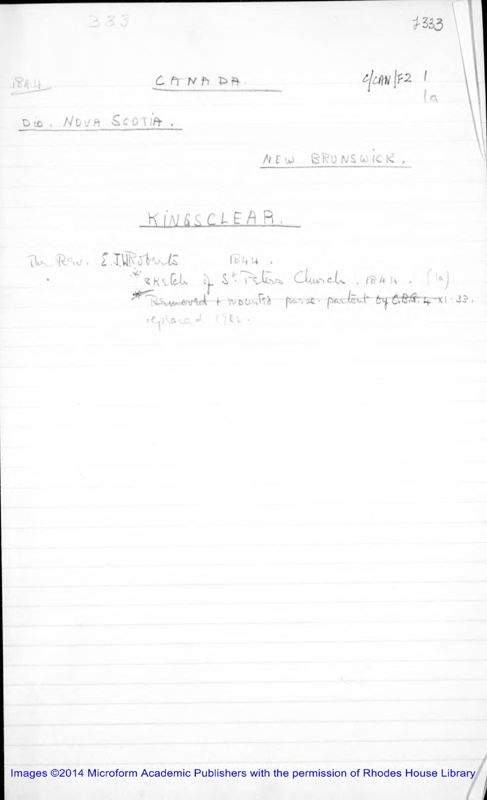 333
7333
1844
CANADA.
C/CAN/F2 1
1a
Dio. NOVA SCOTIA.
NEW BRUNSWICK.
KINGSCLEAR.
The Rev. E.J.W Roberts 1844.
* Sketch of St Peters Church. 1844. (1a)
* Removed + mounted passe-partout by C.B.G. 4-XI-33.
replaced 1982.
Images ©2014 Microform Academic Publishers with the permission of Rhodes House Library